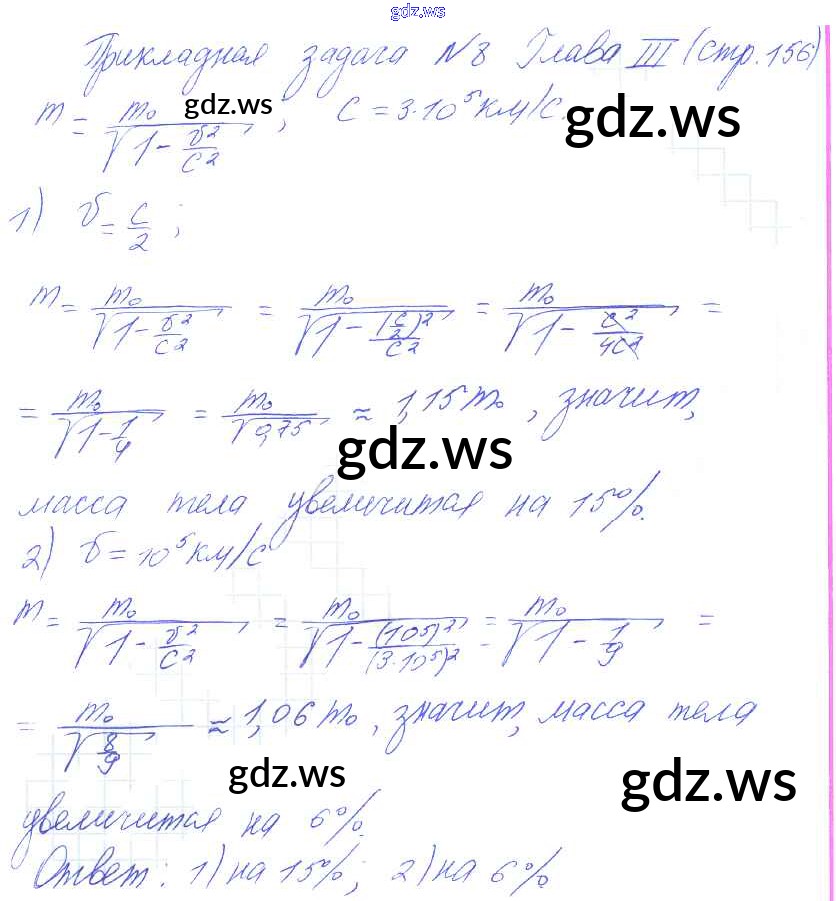 gdz.ws
Прикладная задача N8 Глава III (стр. 156)
m = m₀/√(1 - v²/c²) ; c = 3·10⁵ км/с.
gdz.ws
gdz.ws
1) v = c/2 ;
m = m₀/√(1 - v²/c²) = m₀/√(1 - (c/2)²/c²) = m₀/√(1 - c²/4c²) =
= m₀/√(1 - 1/4) = m₀/√0,75 ≈ 1,15 m₀, значит,
gdz.ws
масса тела увеличится на 15%.
2) v = 10⁵ км/с
m = m₀/√(1 - v²/c²) = m₀/√(1 - (10⁵)²/(3·10⁵)²) = m₀/√(1 - 1/9) =
= m₀/√(8/9) ≈ 1,06 m₀, значит, масса тела
gdz.ws
gdz.ws
увеличится на 6%.
Ответ: 1) на 15%; 2) на 6%